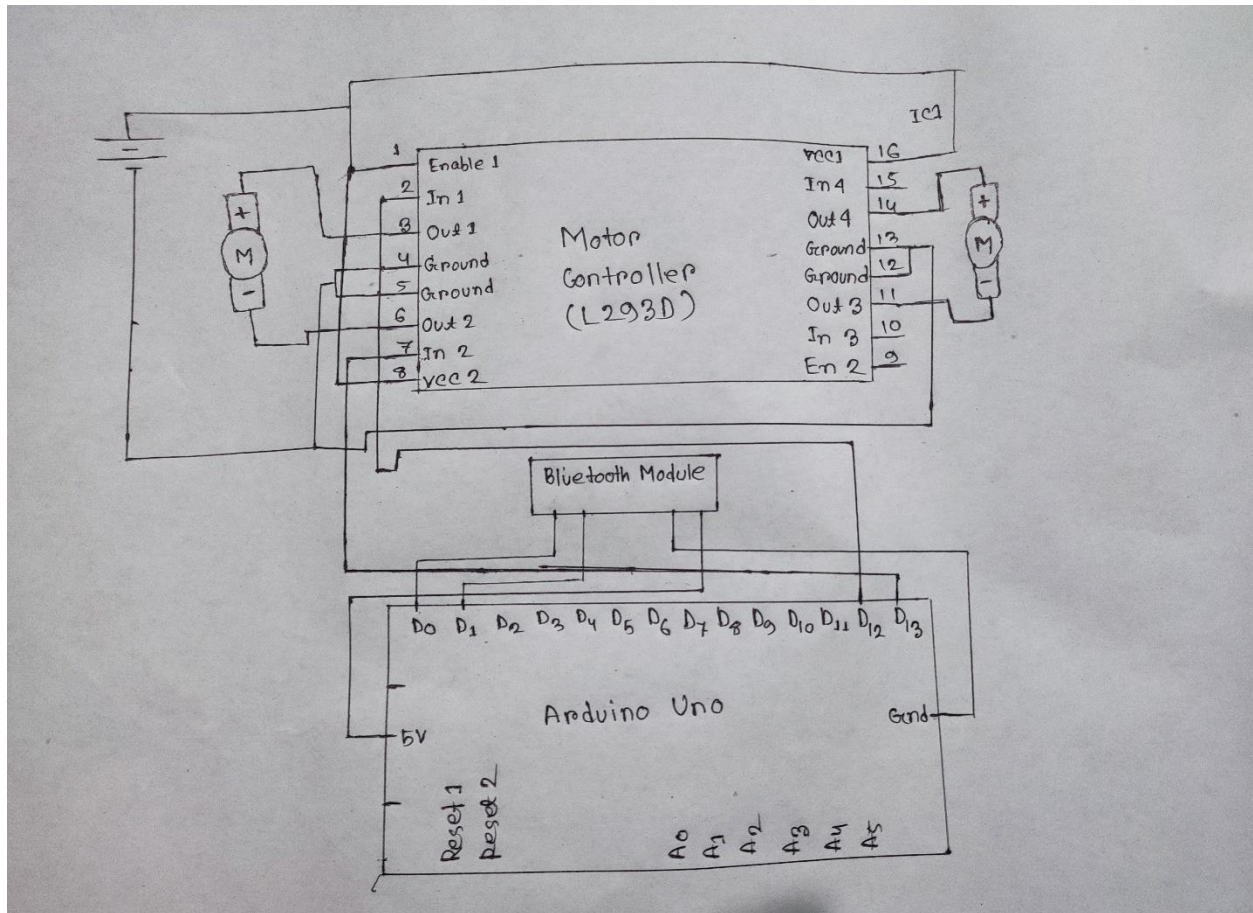 IC1
1 Enable 1
2 In 1
3 Out 1
4 Ground
5 Ground
6 Out 2
7 In 2
8 VCC 2
Motor
Controller
(L293D)
VCC1 16
In 4 15
Out 4 14
Ground 13
Ground 12
Out 3 11
In 3 10
En 2 9
+
M
-
+
M
-
Bluetooth Module
D0 D1 D2 D3 D4 D5 D6 D7 D8 D9 D10 D11 D12 D13
Arduino Uno
5V
Gnd
Reset 1
Reset 2
A0
A1
A2
A3
A4
A5